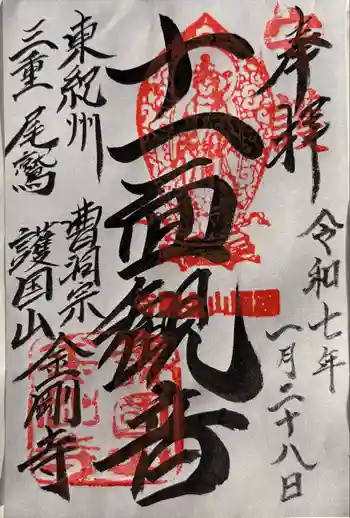 奉拝
令和七年
一月二十八日
十一面観音
東紀州
三重 尾鷲
曹洞宗
護国山
金剛寺